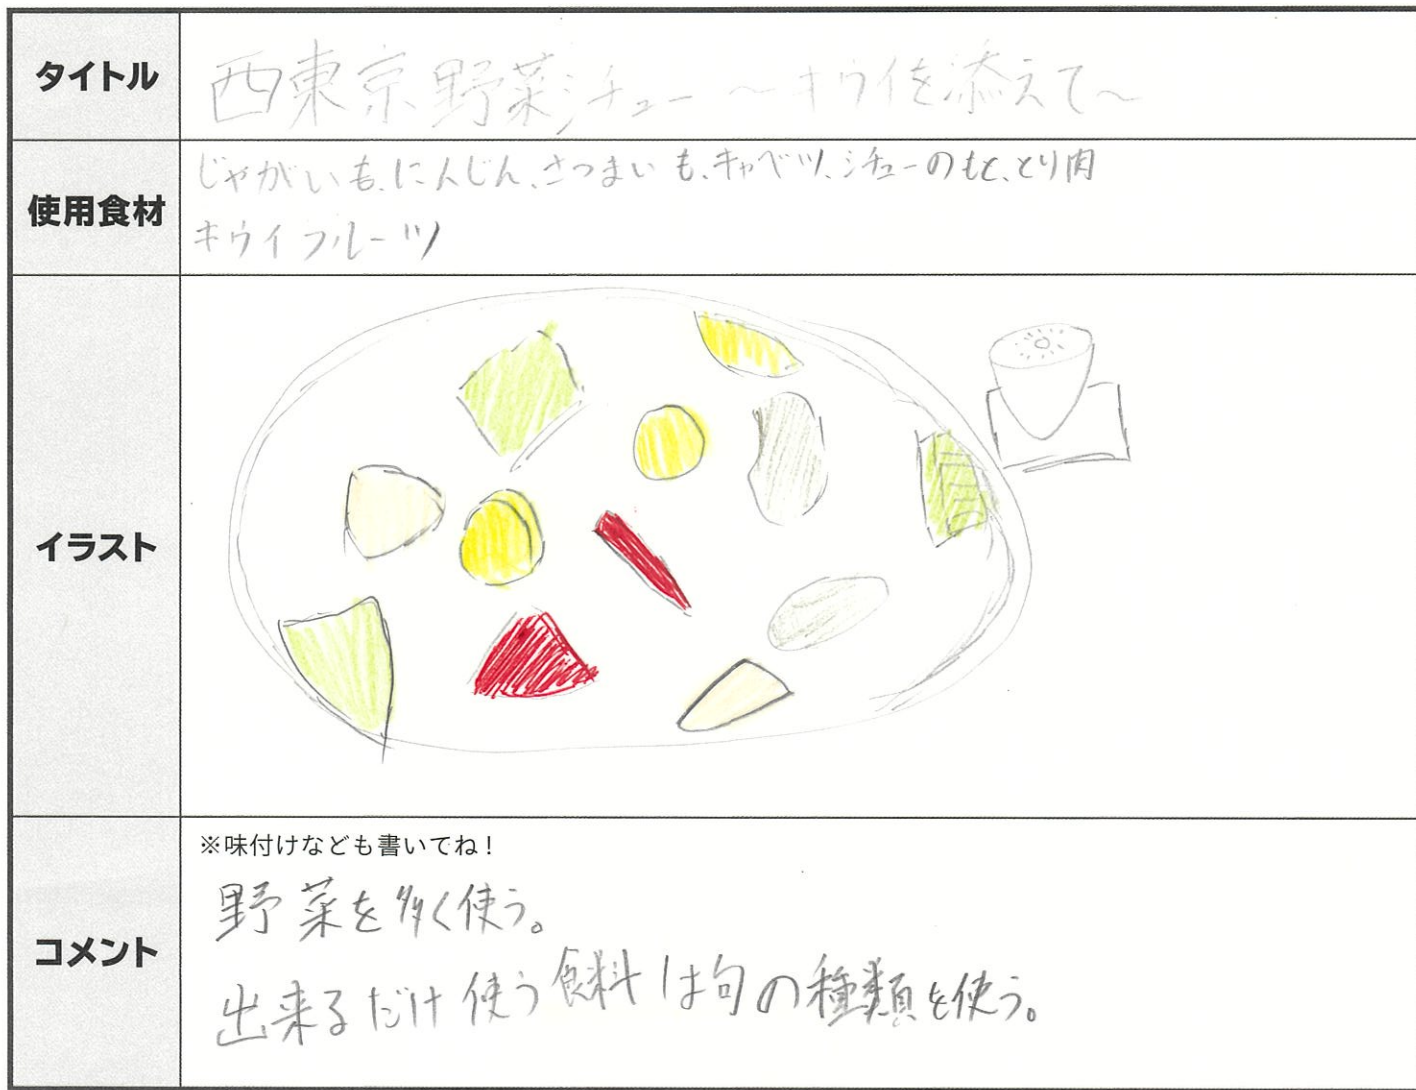 タイトル
西東京野菜シチュー ～キウイを添えて～
使用食材
じゃがいも、にんじん、さつまいも、キャベツ、シチューのもと、とり肉
キウイフルーツ
イラスト
コメント
※味付けなども書いてね！
野菜を多く使う。
出来るだけ使う食料は旬の種類を使う。